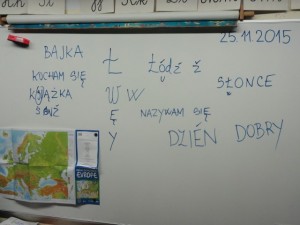 25.11.2015
BAJKA
KOCHAM SIĘ
KSIĄŻKA
Ł
W W
Ę
Y
Łódź ż
SŁONCE
NAZYWAM SIĘ
DZIEŃ DOBRY
EUROPE